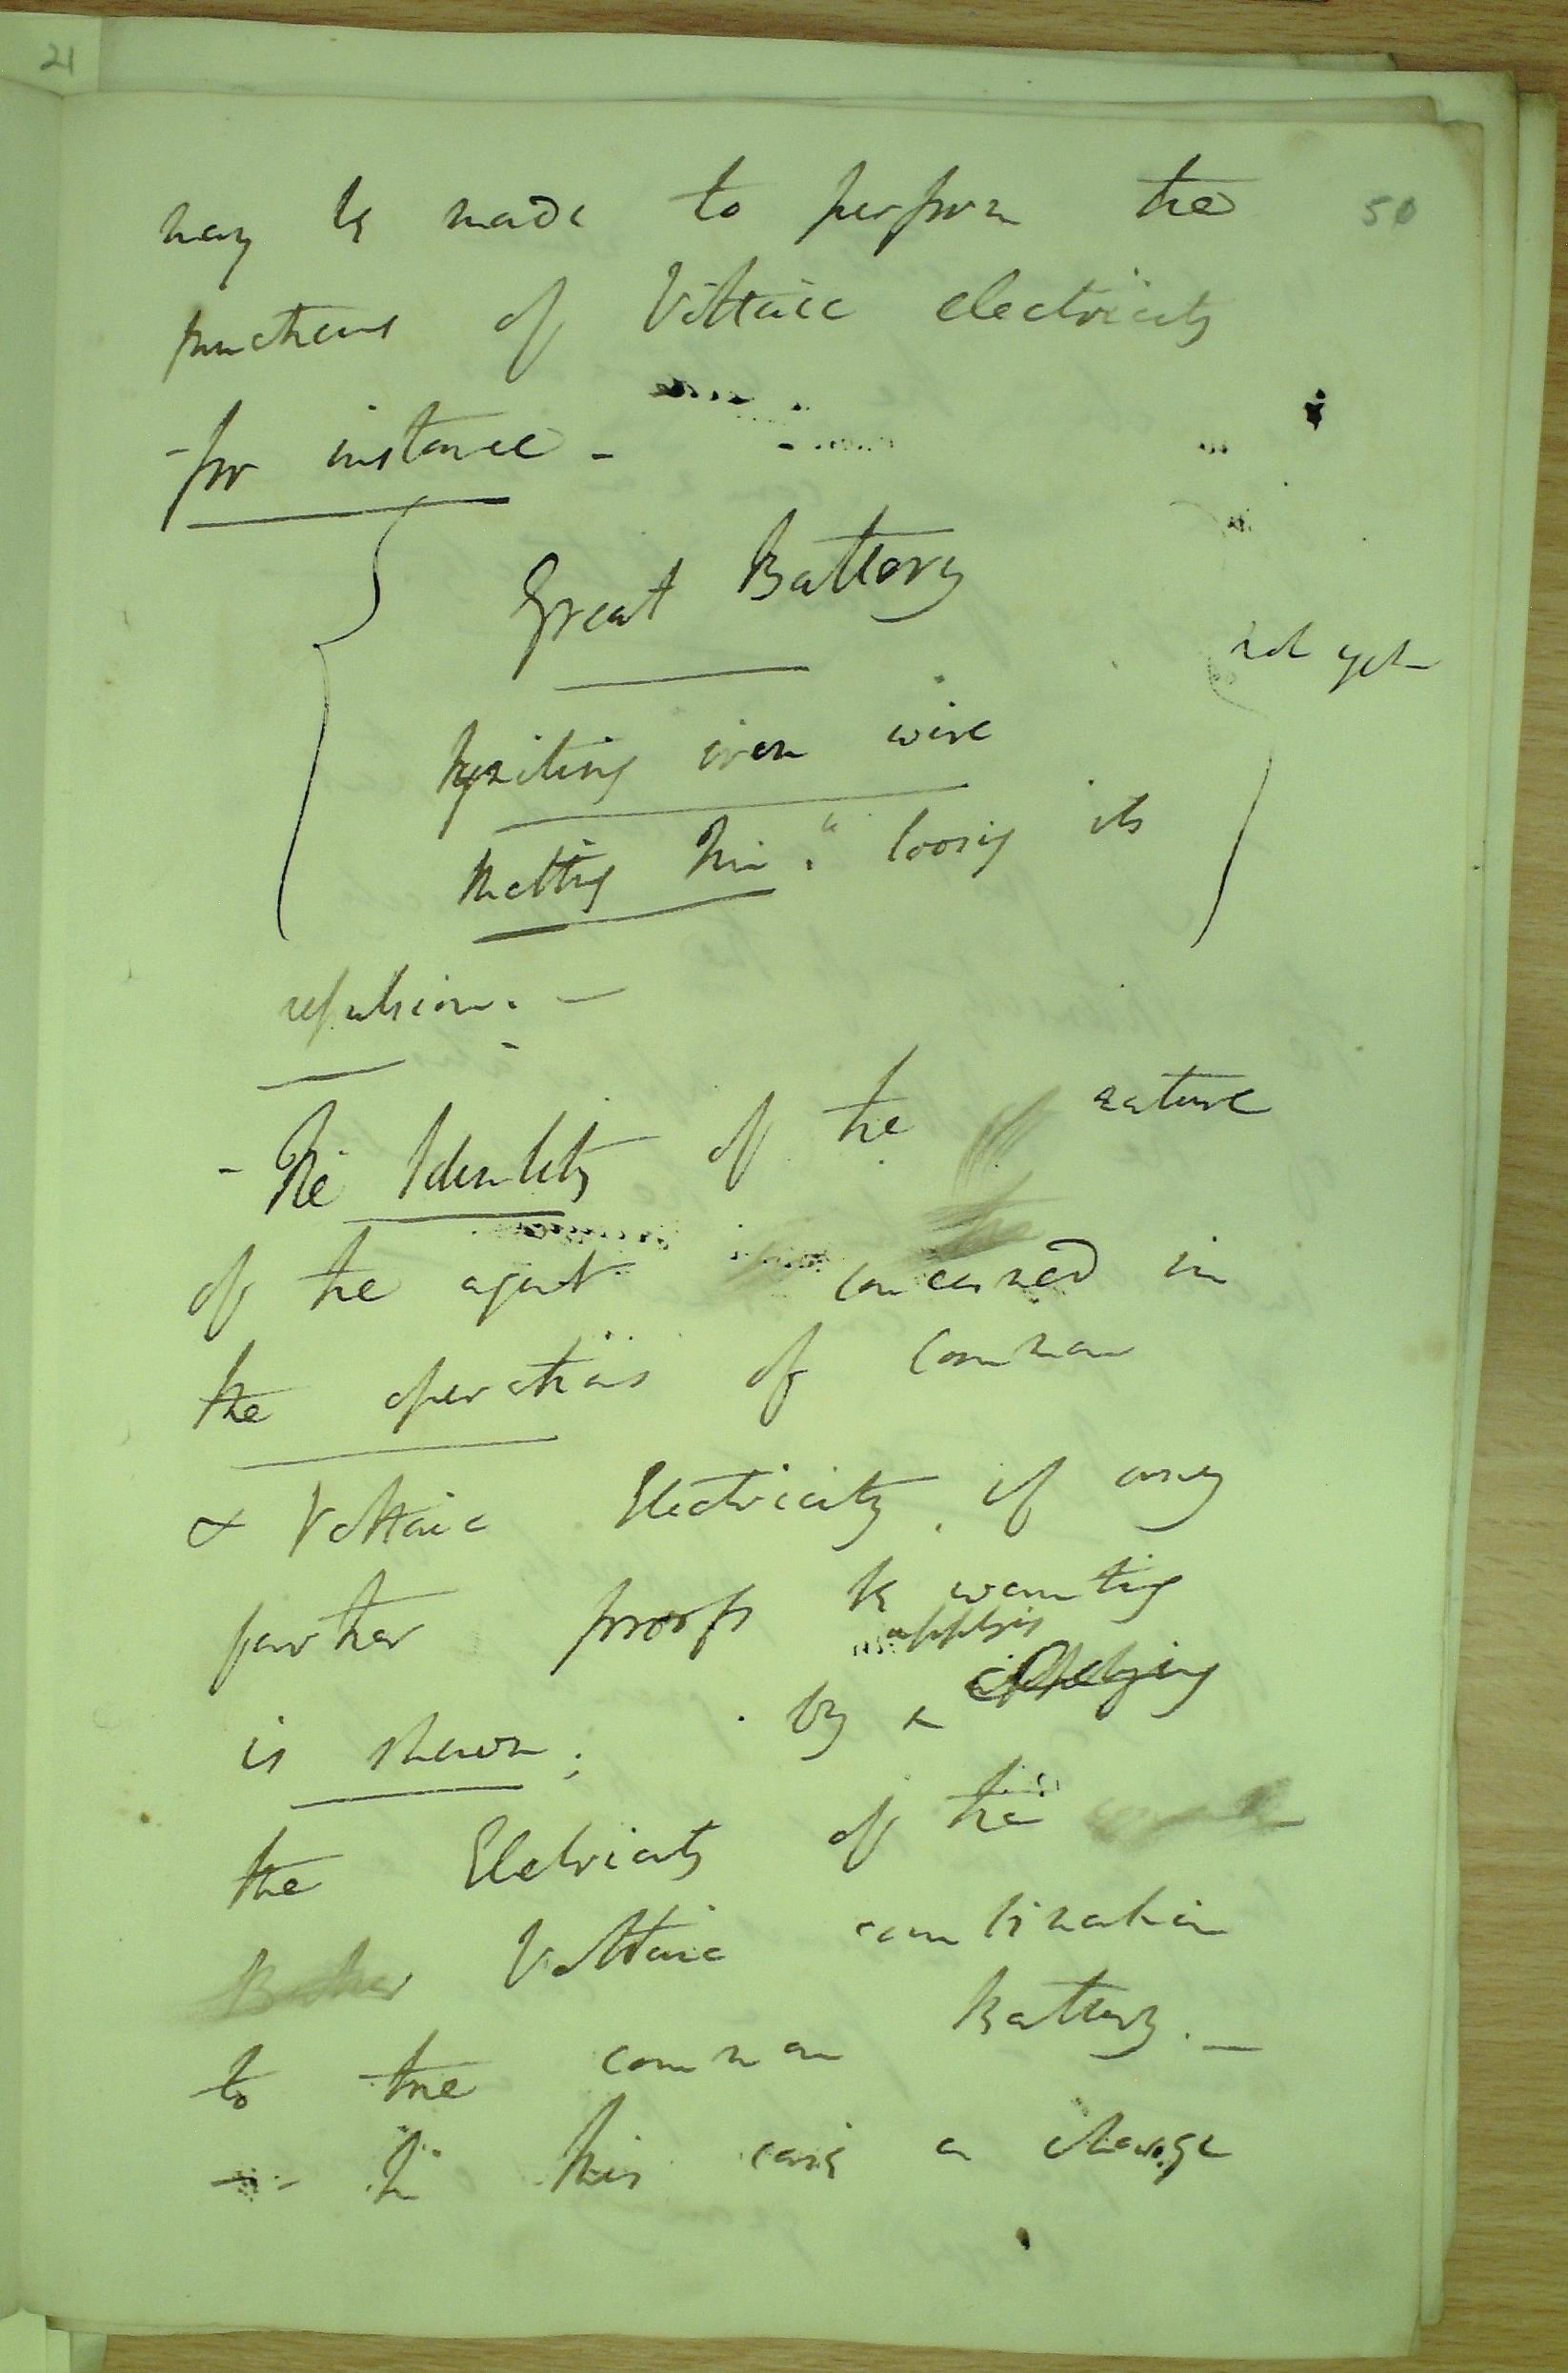 21
50
may be made to perform the
functions of Voltaic electricity
- for instance -
Great Battery
not yet
Igniting iron wire
Melting loosing its
repulsion. -
- The Identity of the nature
of the agent concerned in
the operations of common
& Voltaic Electricity, if any
farther proofs be wanting
applying
is shewn; by ^
the Eletricity of the
Voltaic combination
to the common Battery. -
- In this case a charge